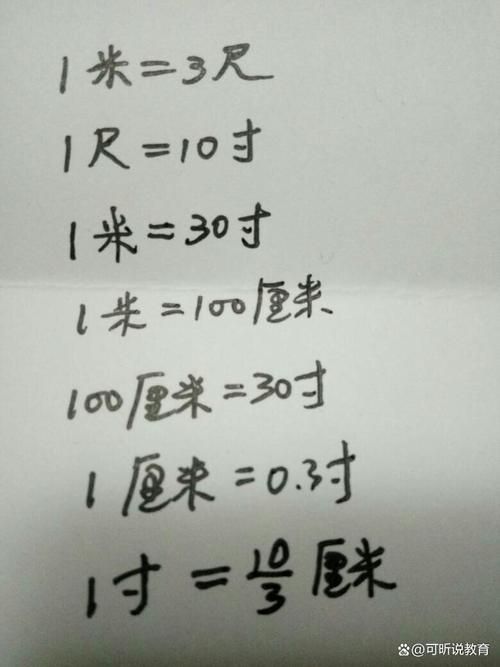 1米=3尺
1尺=10寸
1米=30寸
1米=100厘米
100厘米=30寸
1厘米=0.3寸
1寸=10/3厘米
@可昕说教育